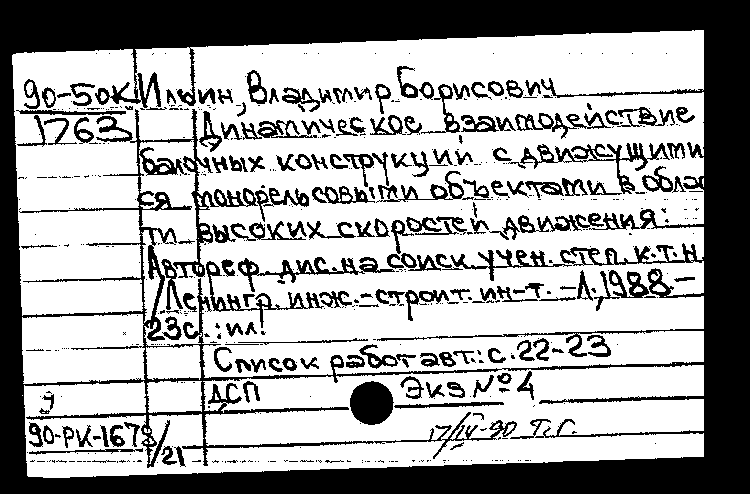 90-50К Ильин, Владимир Борисович
1763 Динамическое взаимодействие
балочных конструкций с движущими
ся монорельсовыми объектами в облас
ти высоких скоростей движения:
Автореф. дис. на соиск. учен. степ. к.т.н
/Ленингр. инж.-строит. ин-т. -Л., 1988.-
23с.: ил.
Список работ авт.: с. 22-23
ДСП Экз №4
9
90-РК-1678/21
17/IV-90 Т.Г.